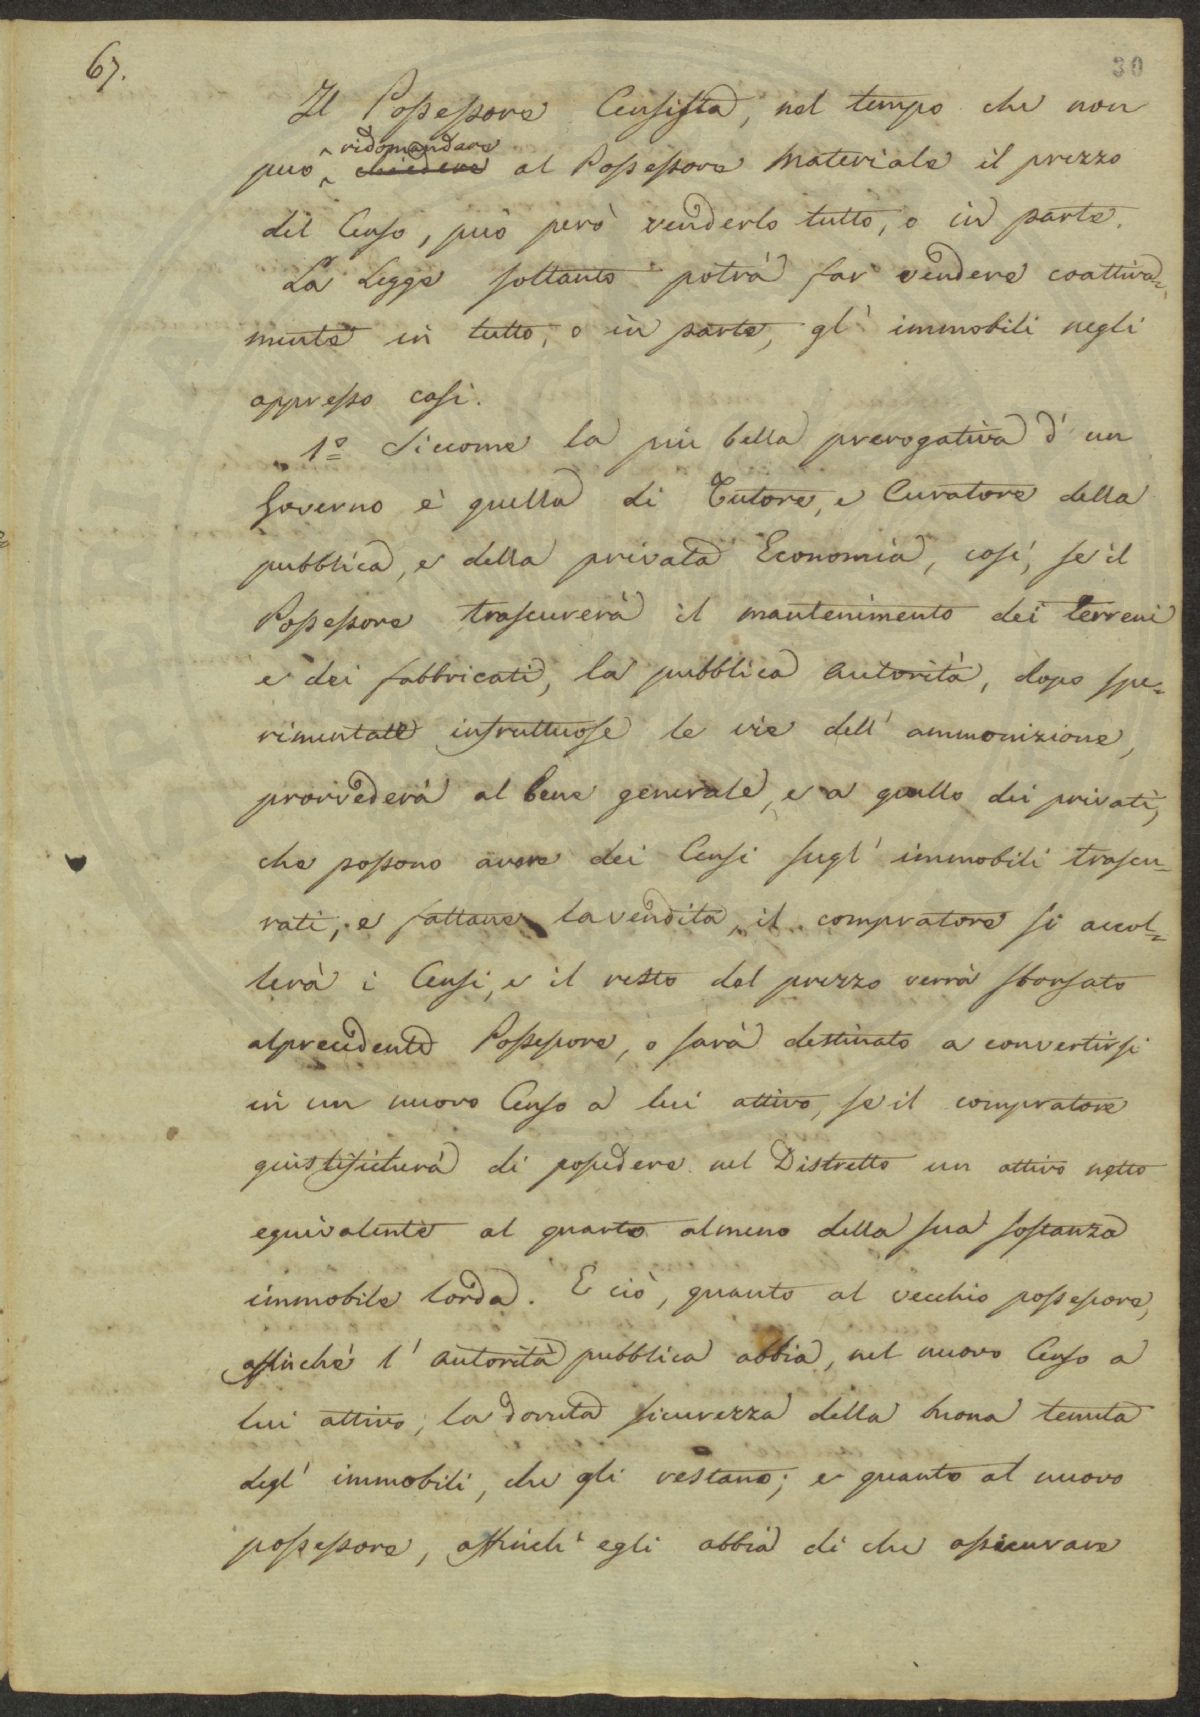 67.
30
Il Possessore Censista, nel tempo che non
può ridomandare chiedere al Possessore Materiale il prezzo
del Censo, può però venderlo tutto, o in parte.
La Legge soltanto potrà far vendere coattiva=
mente in tutto, o in parte, gl' immobili negli
appresso casi.
1º Siccome la più bella prerogativa d' un
Governo è quella di Tutore, e Curatore della
pubblica, e della privata Economia, così, se il
Possessore trascurerà il mantenimento dei terreni
e dei fabbricati, la pubblica autorità, dopo spe=
rimentate infruttuose le vie dell' ammonizione,
provvederà al bene generale, e a quello dei privati,
che possono avere dei Censi sugl' immobili trascu=
rati; e fattane la vendita, il compratore si accol=
lerà i Censi, e il resto del prezzo verrà sborsato
al precedente Possessore, o sarà destinato a convertirsi
in un nuovo Censo a lui attivo, se il compratore
giustificherà di possedere nel Distretto un attivo netto
equivalente al quarto almeno della sua sostanza
immobile lorda. E ciò, quanto al vecchio possessore,
affinchè l' autorità pubblica abbia, nel nuovo Censo a
lui attivo, la dovuta sicurezza della buona tenuta
degl' immobili, che gli restano; e quanto al nuovo
possessore, affinch' egli abbia di che assicurare